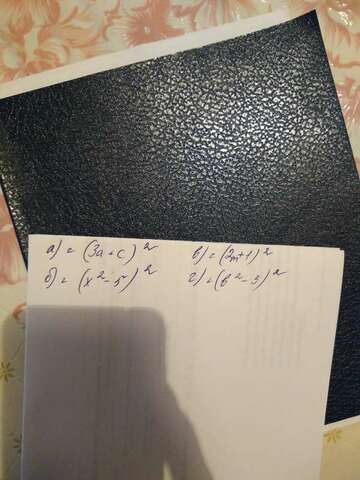 а) = (3a+c)² в) = (2m+1)²
б) = (x²-5)² г) = (b²-3)²